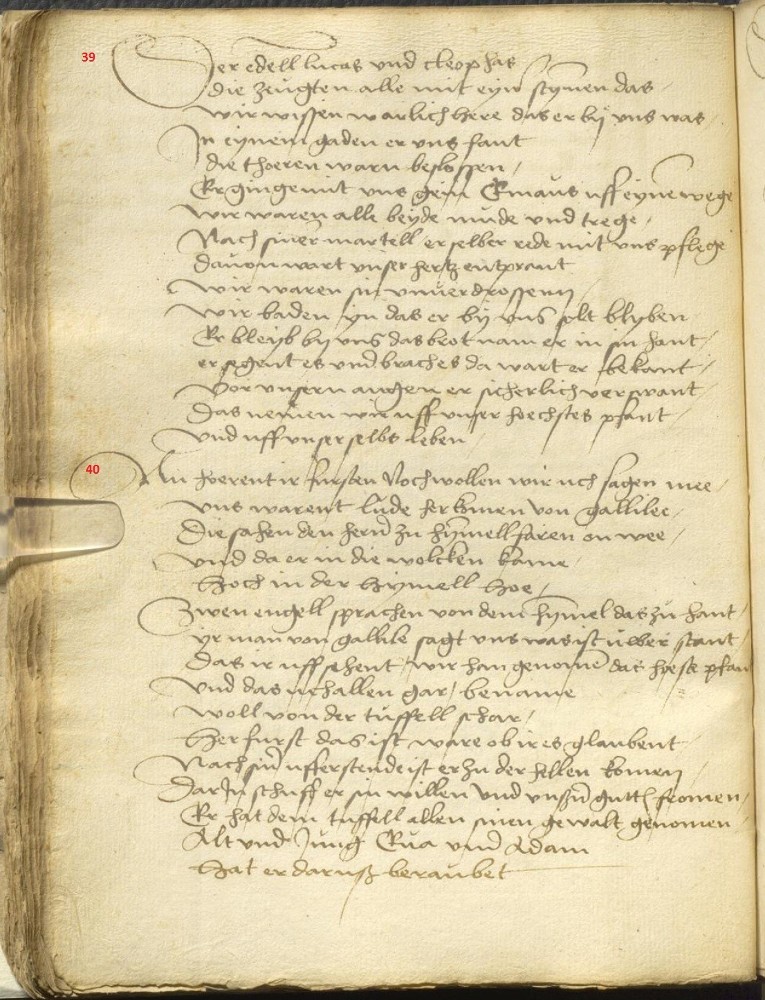 39
Der edell lucas und cleophas
die zeugten alle mit eyn stymen das
wir wissen warlich here das er by uns was
In eynem gaden er uns fant
die thoeren warn beslossen
Er ginge mit uns gein Emaus uff eyne wege
wir waren alle beyde mude und trege
Nach siner martell er selber rede mit uns pflege
davon wart unser hertz entprant
wir waren sin unverdrossenn
wir baden yn das er by uns solt blyben
Er bleyb by uns das brot nam er in sin hant
er segent es und brach es da wart er bekant
vor unsern augen er sicherlich verswant
Das nemen wir uff unser hoechstes pfant
und uff unser selbs leben
40
Nu hoerent ir fursten Noch wollen wir uch sagen mee
uns warent lude herkomen von gallilee
Die sahen den hern zu hymell faren on wee
und da er in die wolcken kame
Hoch in der hymell hoe
Zwen engell sprachen von dem hymel das zu hant
yr man von gallile sagt uns was ist uwer stant
Das ir uff sehent wir han genomen das hoeste pfan
und das uch allen gar bename
woll von der tuffell schar
Her furst das ist ware ob ir es glaubent
Nach sin ufferstende ist er zu der hellen komen
Darin schuff er sin willen und unsern gutten fromen
Er hat dem tuffell allen sinen gewalt genomen
Alt und Jung Eva und Adam
Hat er daruß beraubet